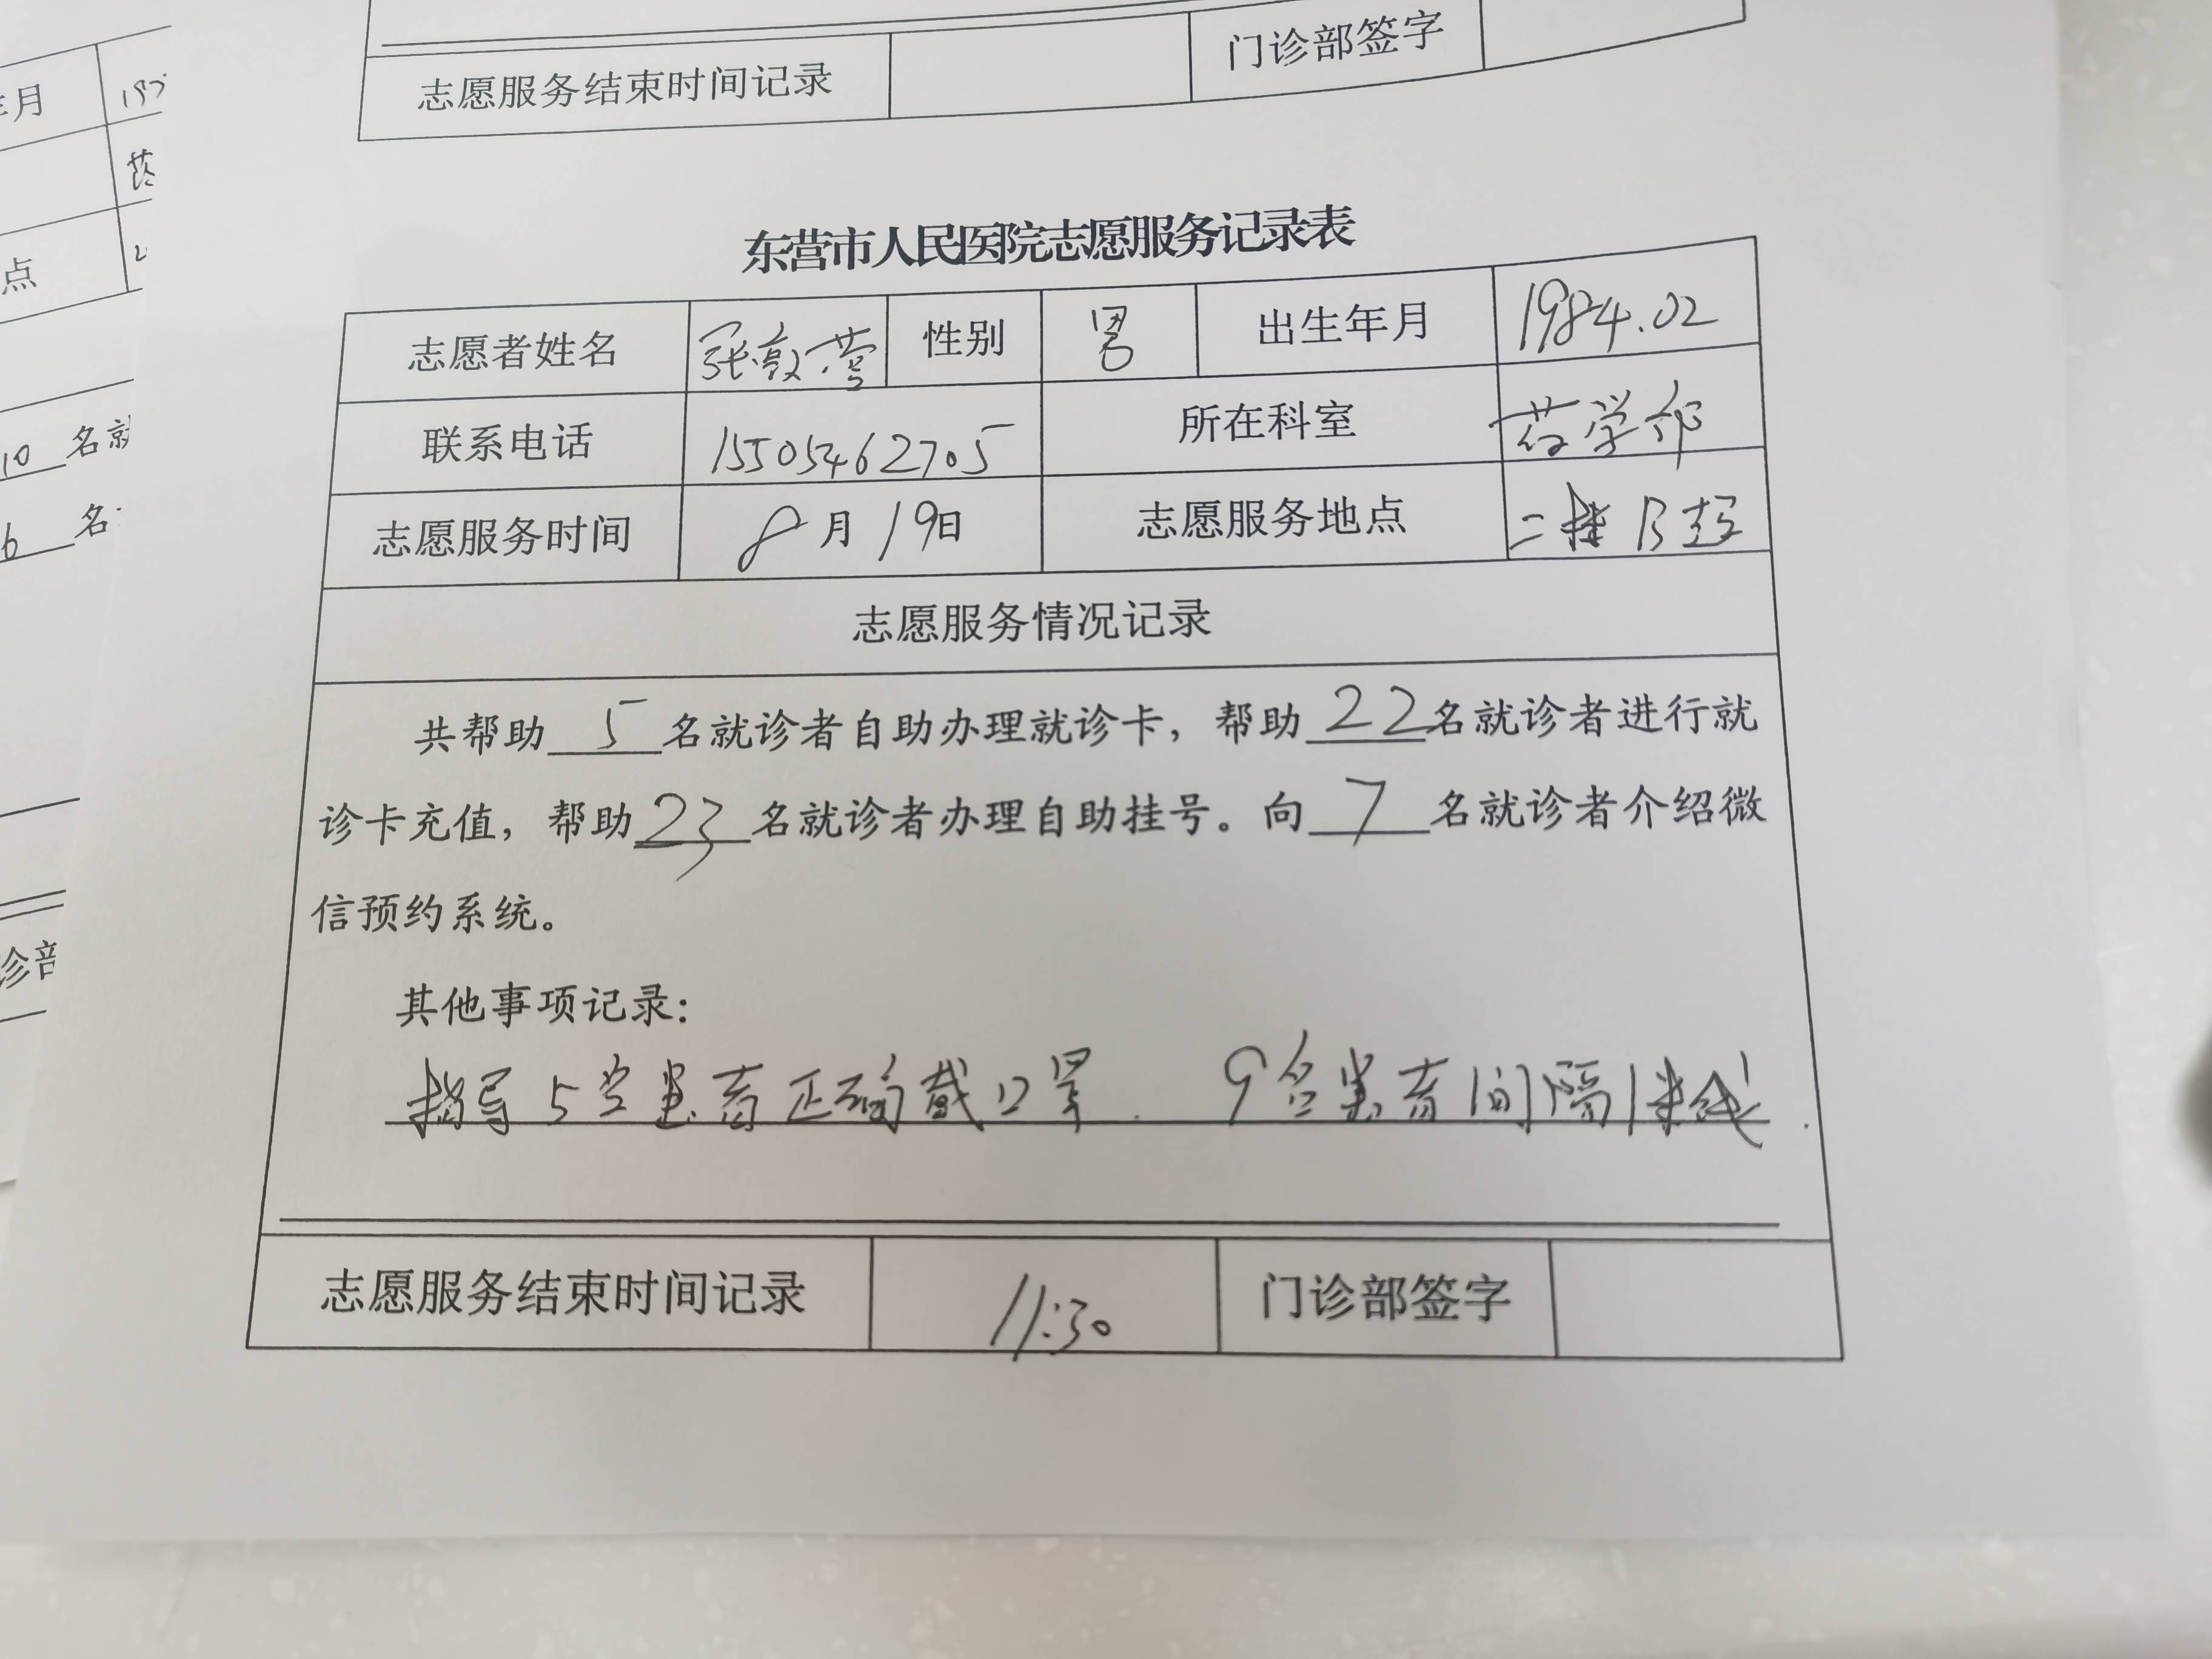 志愿服务结束时间记录 门诊部签字
年月 197
点
10 名就
6 名
诊部
东营市人民医院志愿服务记录表
志愿者姓名 张敦营 性别 男 出生年月 1984.02
联系电话 15505462705 所在科室 药学部
志愿服务时间 8月19日 志愿服务地点 二楼B超
志愿服务情况记录
共帮助 5 名就诊者自助办理就诊卡，帮助 22 名就诊者进行就
诊卡充值，帮助 23 名就诊者办理自助挂号。向 7 名就诊者介绍微
信预约系统。
其他事项记录：
指导5名患者正确戴口罩. 9名患者间隔1米线.
志愿服务结束时间记录 11:30 门诊部签字